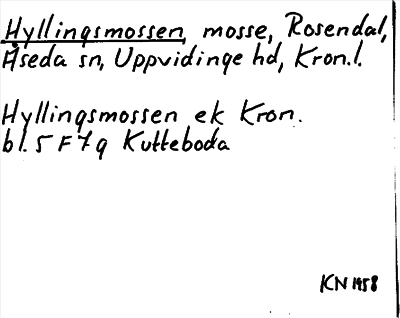 Hyllingsmossen, mosse, Rosendal,
Åseda sn, Uppvidinge hd, Kron.l.
Hyllingsmossen ek Kron.
bl. 5 F 7 g Kutteboda
KN 1958